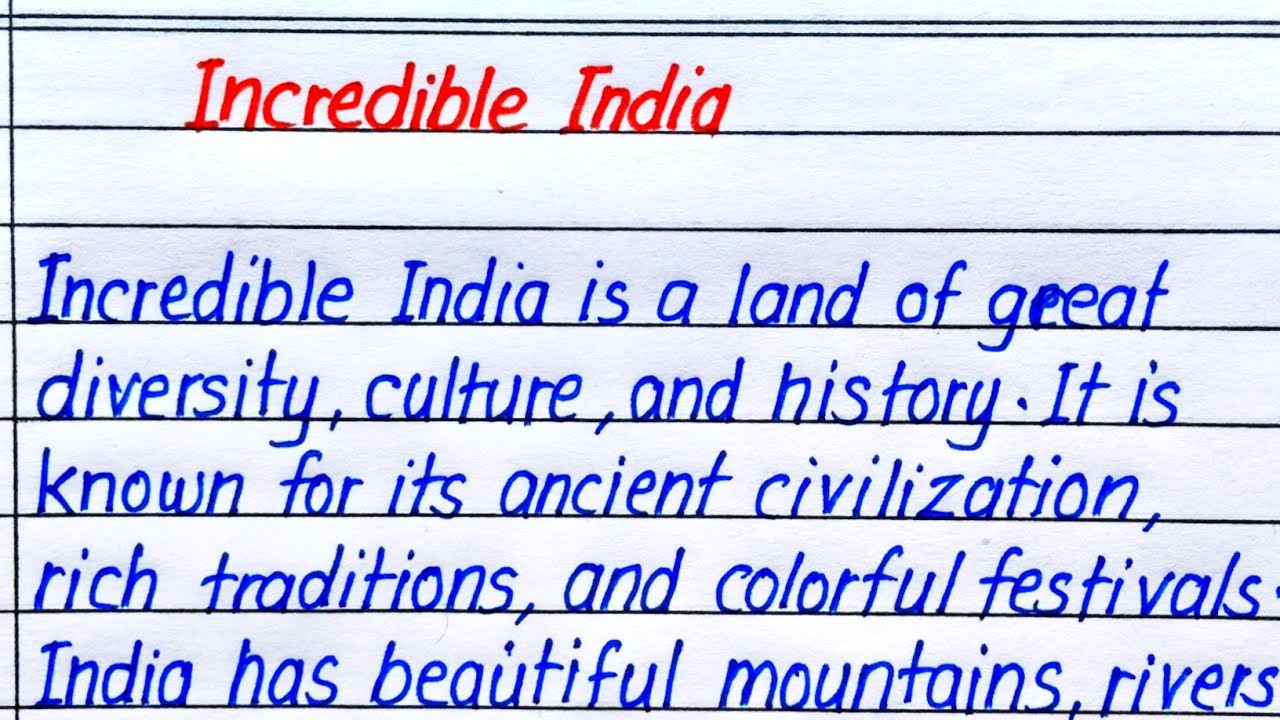 Incredible India
Incredible India is a land of great
diversity, culture, and history. It is
known for its ancient civilization,
rich traditions, and colorful festivals.
India has beautiful mountains, rivers